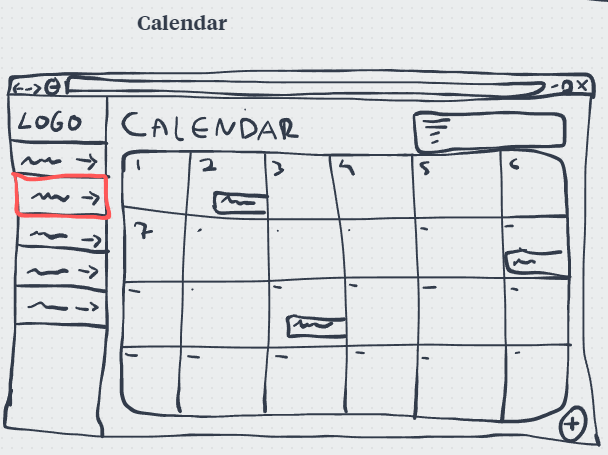 Calendar
LOGO
CALENDAR
1 2 3 4 5 6
7